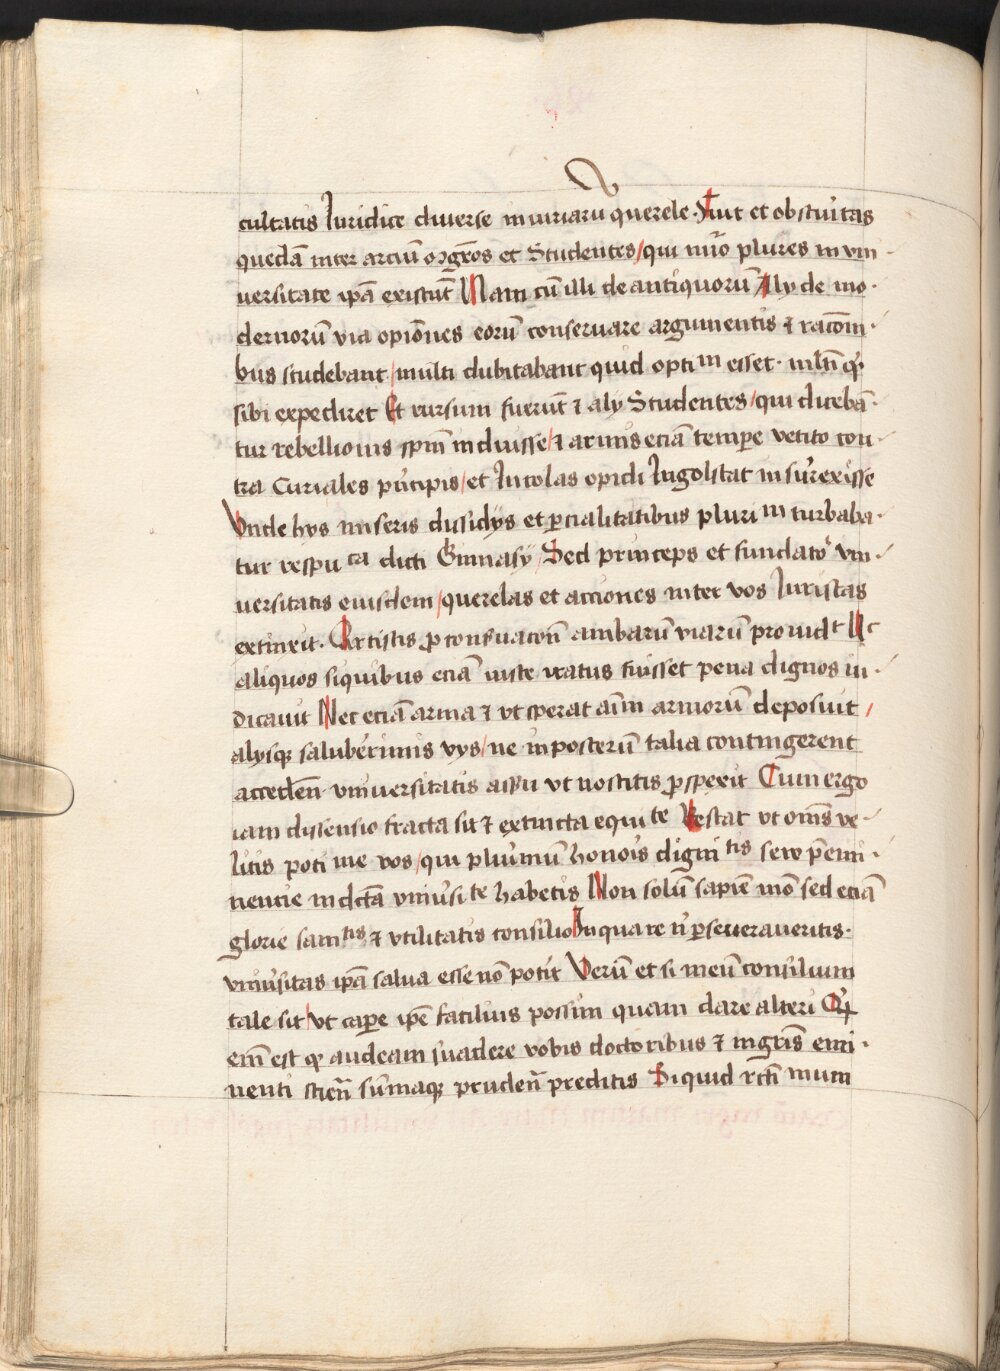 cultatis Juridice diverse iniuriarū querele. Fuit et obscuritas
quedā inter arciū mgr̄os et Studentes / qui nūo plures in vni-
uersitate ip̄a existūt Nam cū illi de antiquorū Aly de mo-
dernorū via opiōnes eorū conseruare argumentis ⁊ racōni-
bus studebant / multi dubitabant quid optim esset.
sibi expediret Et rursum fuerūt ⁊ aly Studentes / qui dicebā-
tur rebellionis sp̄m induisse / ⁊ armis eciā tempe vetito con-
tra Curiales pn̄cipis / et Incolas opidi Ingolstat insurexisse
Vnde hys miseris dissidys et ꝑcialitatibus plurim turbaba-
tur respuca dicti Gimnasy / Sed princeps et fundator vni-
uersitatis eiusdem / querelas et acciones inter vos Juristas
extinxit. Artistis ꝓ conseruacōn ambarū viarū prouidt Ac
aliquos siquibus eciā iuste iratus fuisset pena dignos iu-
dicauit Nec eciā arma ⁊ vt sperat aīm armorū deposuit /
alysq; saluberimis vys / ne inposterū talia contingerent
acceden̄ vniuersitatis assu vt nostitis ꝓspexit Cum ergo
iam dissensio fracta sit ⁊ extincta equite Restat vt om̄s ve-
litis potime vos / qui plurimū honoris dignitis sew p̄emi-
nencie in dcta vniūsite habetis Non solū sapien mō sed eciā
glorie samtis ⁊ vtilitatis consilio In qua re n̄ ꝑseueraueritis.
vniūsitas ip̄a salua esse nō potit Verū et si meū consilium
tale sit / vt cape ip̄e facilius possim quam dare alteri Qꝫ
em̄ est qꝫ audeam suadere vobis doctoribus ⁊ mgris emi-
nenti scien̄ sumaq; pruden̄ preditis Siquid rctī mum